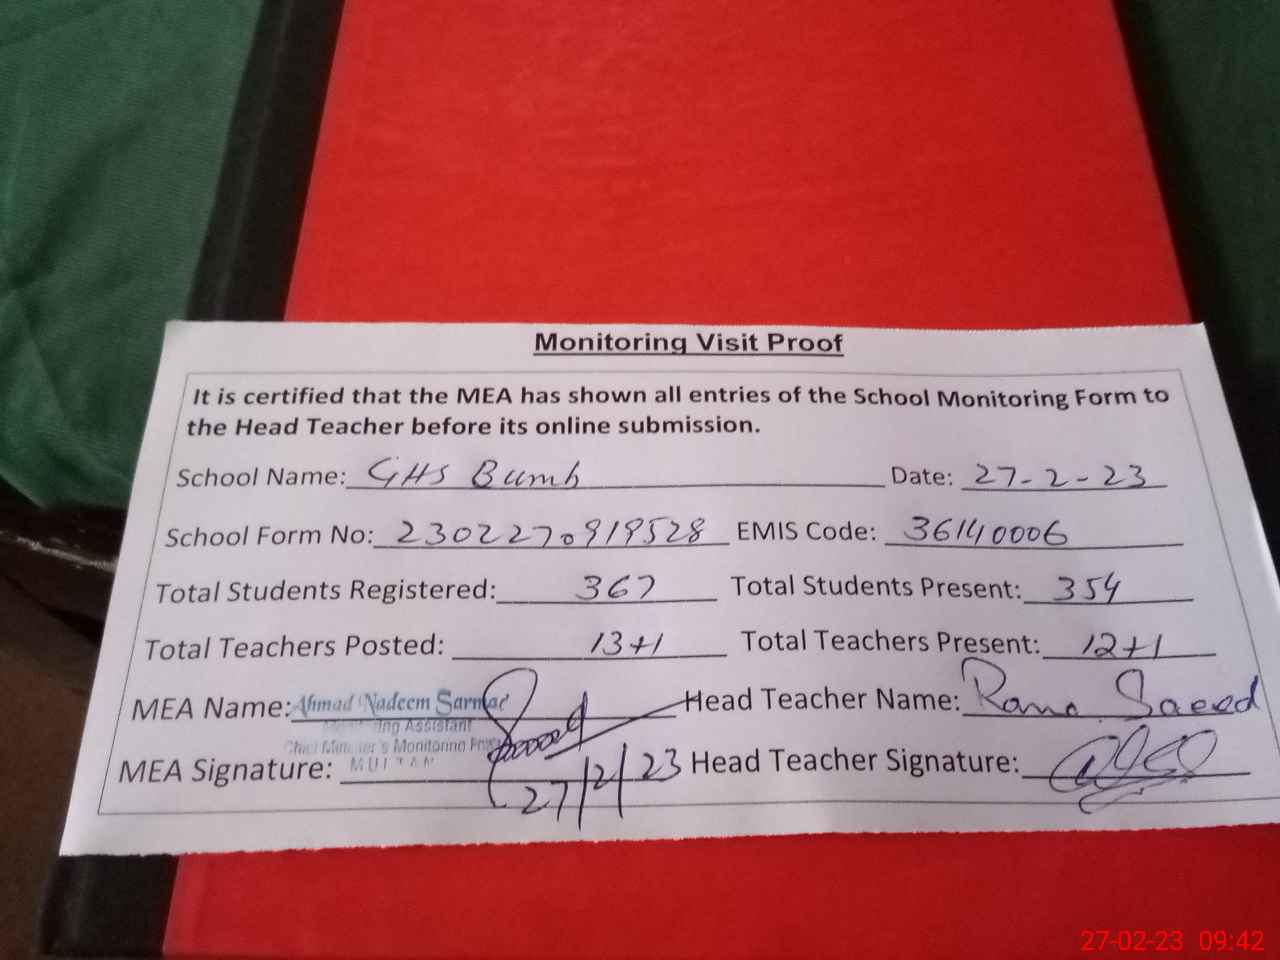 Monitoring Visit Proof
It is certified that the MEA has shown all entries of the School Monitoring Form to
the Head Teacher before its online submission.
School Name: GHS Bumb Date: 27-2-23
School Form No: 2302270919528 EMIS Code: 36140006
Total Students Registered: 367 Total Students Present: 354
Total Teachers Posted: 13+1 Total Teachers Present: 12+1
MEA Name: Ahmad Nadeem Sarmad Head Teacher Name: Rana Saeed
Monitoring Assistant
Chief Minister's Monitoring
MULTAN
MEA Signature: 27/2/23 Head Teacher Signature:
27-02-23 09:42